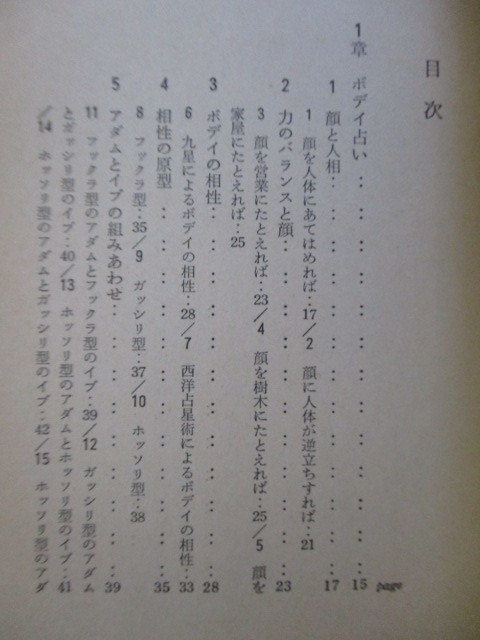 目次
page
1章 ボデイ占い‥‥‥‥‥‥‥‥‥‥15
1 顔と人相‥‥‥‥‥‥‥‥‥‥17
1 顔を人体にあてはめれば‥17/2 顔に人体が逆立ちすれば‥21
2 力のバランスと顔‥‥‥‥‥‥‥‥23
3 顔を営業にたとえれば‥23/4 顔を樹木にたとえれば‥25/5 顔を
家屋にたとえれば‥25
3 ボデイの相性‥‥‥‥‥‥‥‥‥28
6 九星によるボデイの相性‥28/7 西洋占星術によるボデイの相性‥33
4 相性の原型‥‥‥‥‥‥‥‥‥‥35
8 フックラ型‥35/9 ガッシリ型‥37/10 ホッソリ型‥38
5 アダムとイブの組みあわせ‥‥‥‥‥‥39
11 フックラ型のアダムとフックラ型のイブ‥39/12 ガッシリ型のアダム
とガッシリ型のイブ‥40/13 ホッソリ型のアダムとホッソリ型のイブ‥41
/14 ホッソリ型のアダムとガッシリ型のイブ‥42/15 ホッソリ型のアダ